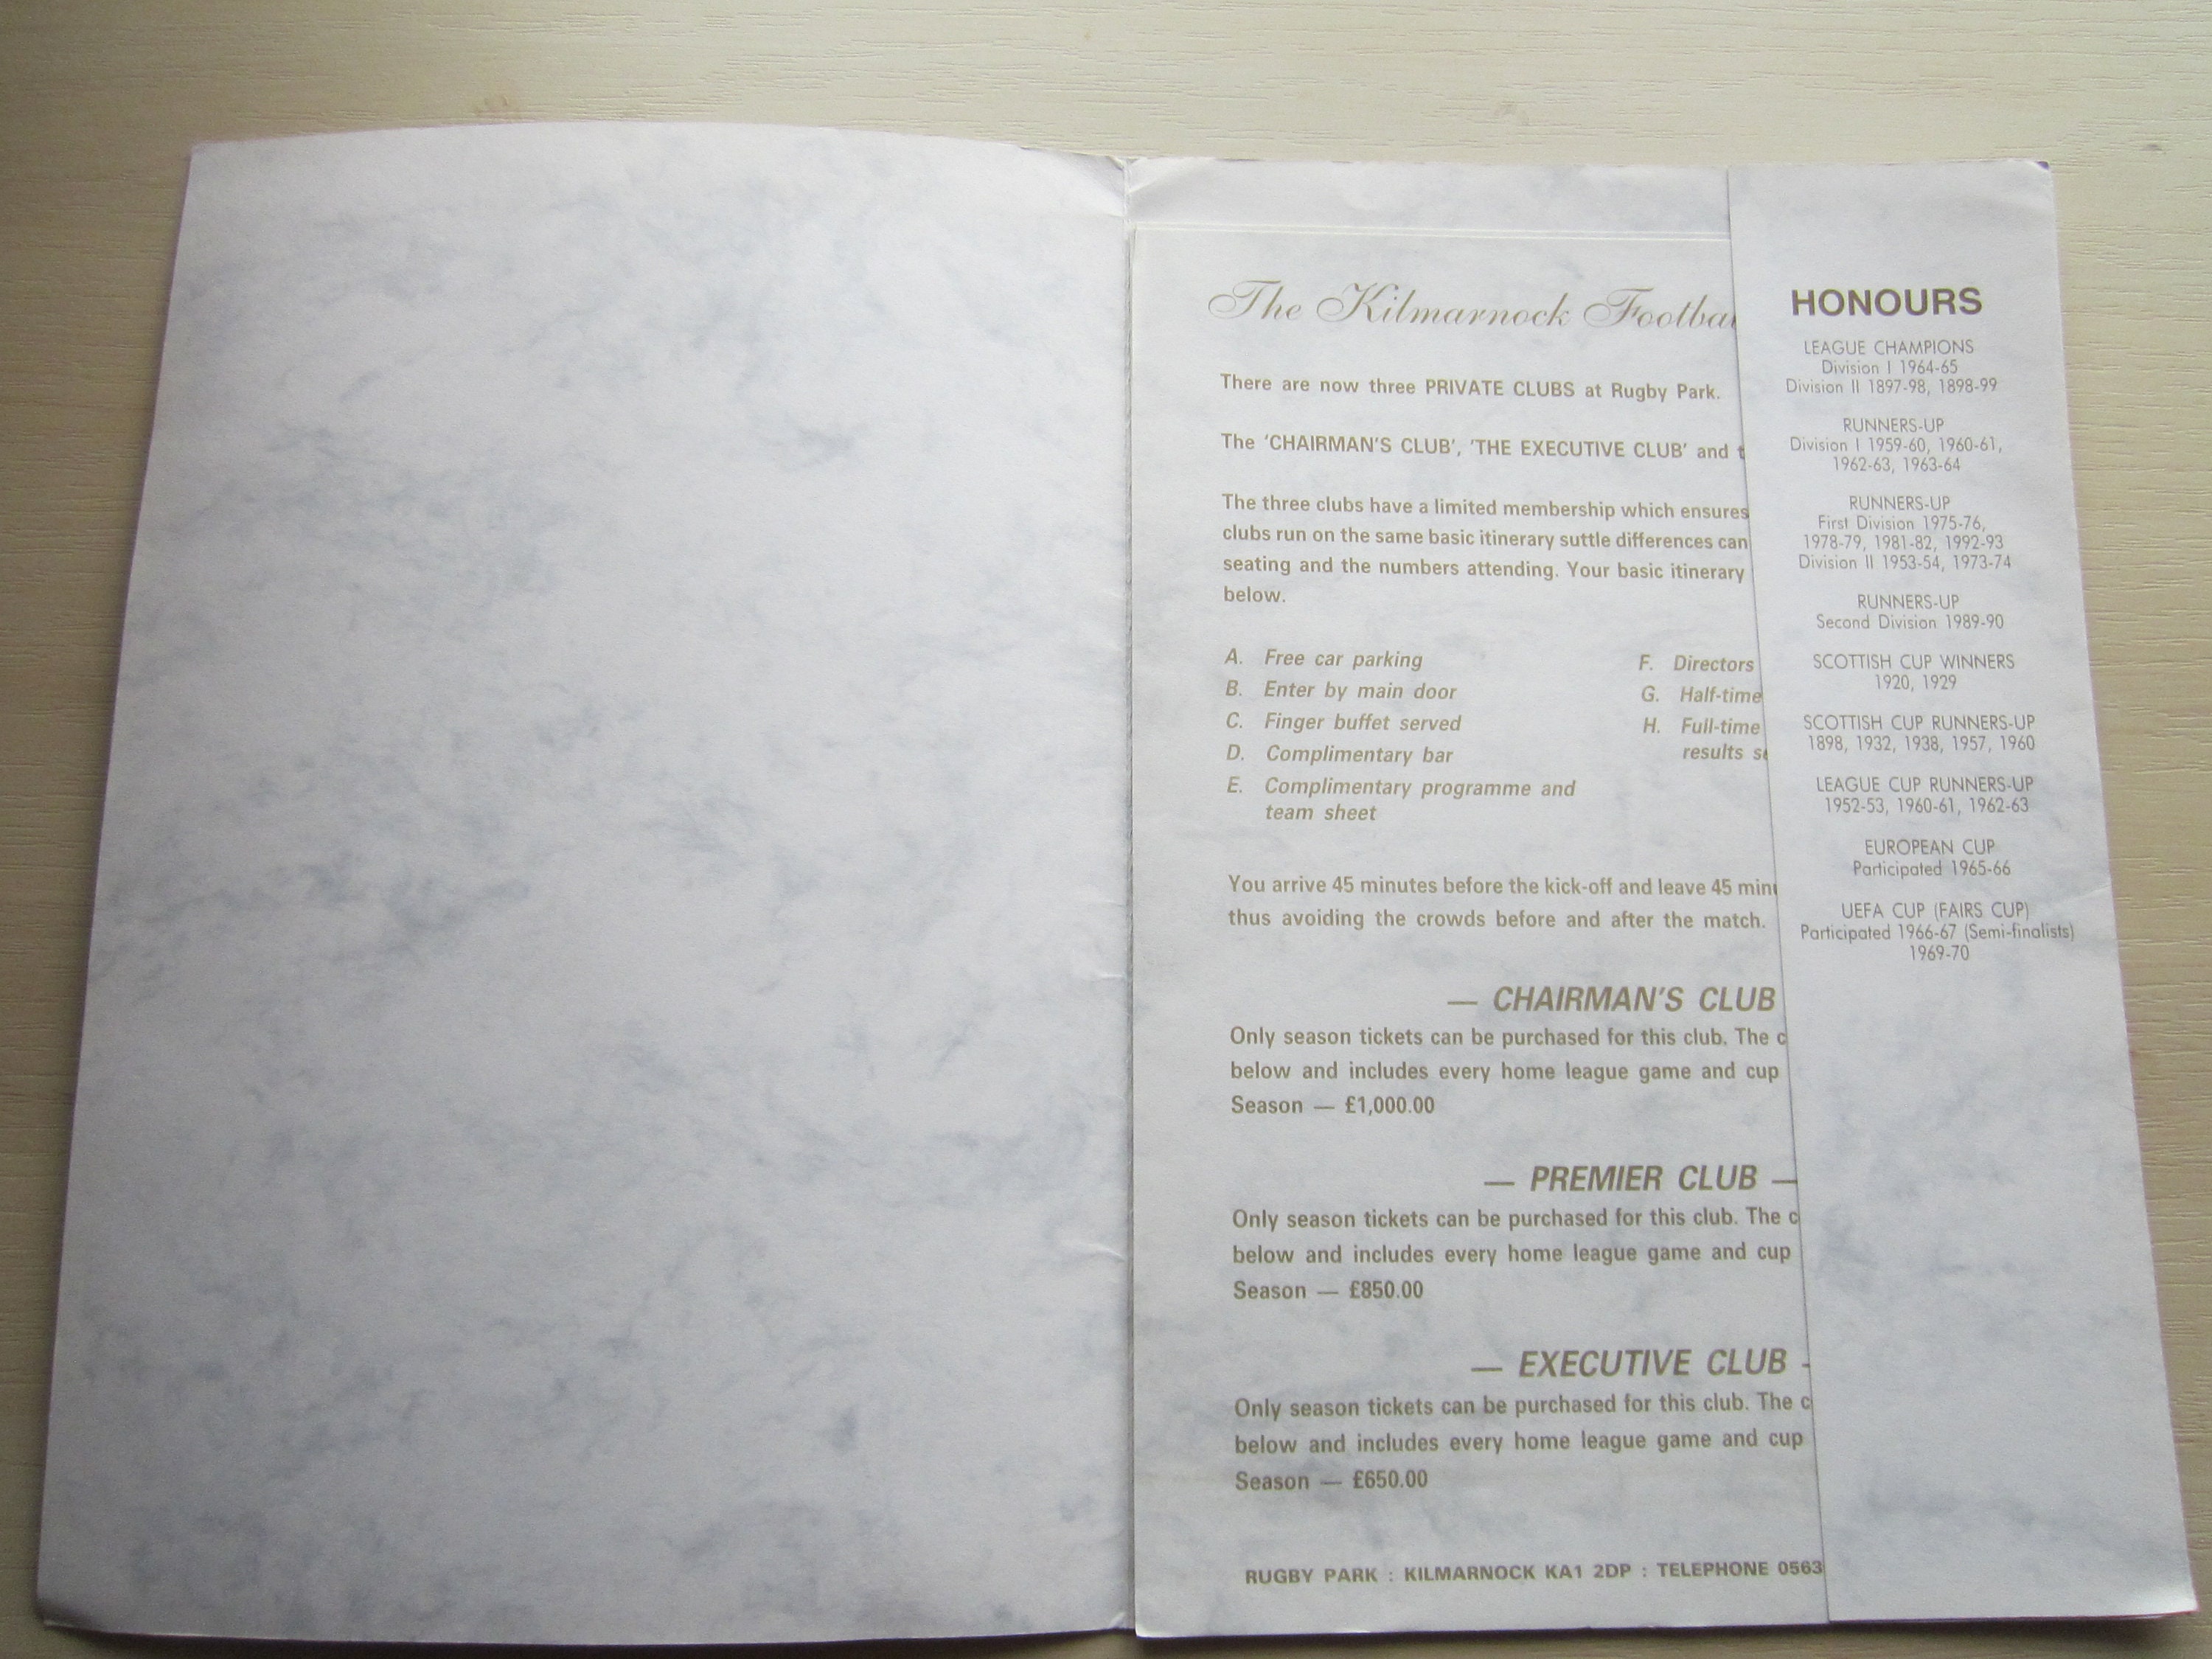 The Kilmarnock Footba
There are now three PRIVATE CLUBS at Rugby Park.
The 'CHAIRMAN'S CLUB', 'THE EXECUTIVE CLUB' and t
The three clubs have a limited membership which ensures
clubs run on the same basic itinerary suttle differences can
seating and the numbers attending. Your basic itinerary
below.
A. Free car parking
B. Enter by main door
C. Finger buffet served
D. Complimentary bar
E. Complimentary programme and
team sheet
F. Directors
G. Half-time
H. Full-time
results se
You arrive 45 minutes before the kick-off and leave 45 minu
thus avoiding the crowds before and after the match.
— CHAIRMAN'S CLUB
Only season tickets can be purchased for this club. The c
below and includes every home league game and cup
Season — £1,000.00
— PREMIER CLUB —
Only season tickets can be purchased for this club. The c
below and includes every home league game and cup
Season — £850.00
— EXECUTIVE CLUB -
Only season tickets can be purchased for this club. The c
below and includes every home league game and cup
Season — £650.00
RUGBY PARK : KILMARNOCK KA1 2DP : TELEPHONE 0563
HONOURS
LEAGUE CHAMPIONS
Division I 1964-65
Division II 1897-98, 1898-99
RUNNERS-UP
Division I 1959-60, 1960-61,
1962-63, 1963-64
RUNNERS-UP
First Division 1975-76,
1978-79, 1981-82, 1992-93
Division II 1953-54, 1973-74
RUNNERS-UP
Second Division 1989-90
SCOTTISH CUP WINNERS
1920, 1929
SCOTTISH CUP RUNNERS-UP
1898, 1932, 1938, 1957, 1960
LEAGUE CUP RUNNERS-UP
1952-53, 1960-61, 1962-63
EUROPEAN CUP
Participated 1965-66
UEFA CUP (FAIRS CUP)
Participated 1966-67 (Semi-finalists)
1969-70